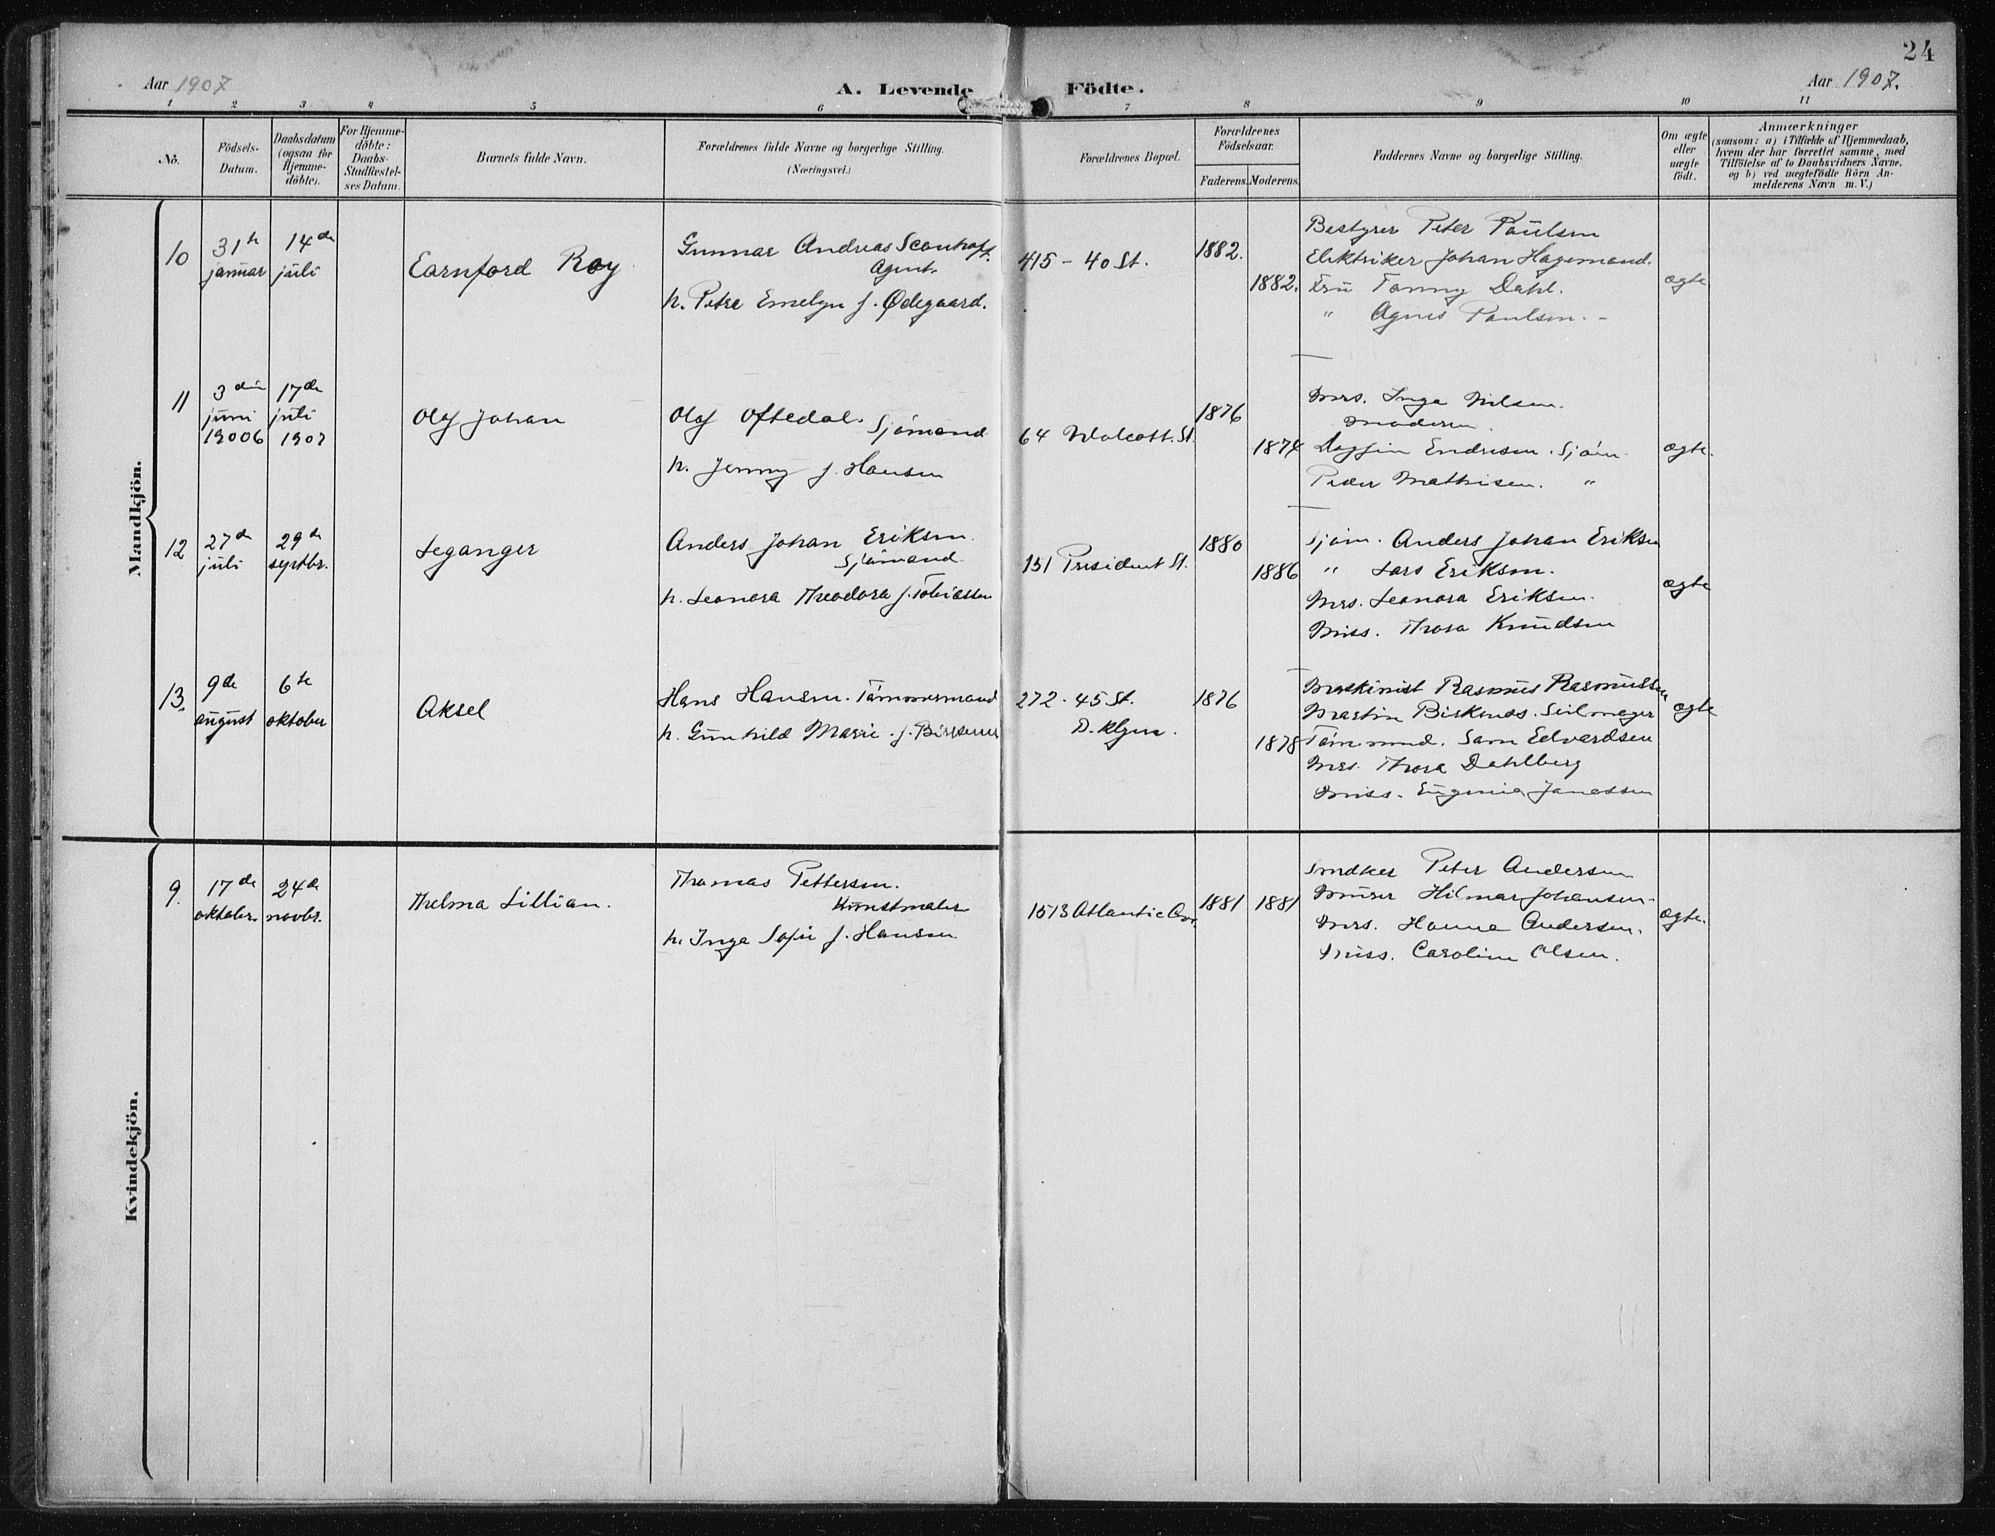 24
Aar 1907
A. Levende Födte.
Aar 1907.
1 2 3 4 5 6 7 8 9 10 11
No.
Födsels-
Datum.
Daabsdatum
(ogsaa for
Hjemme-
döbte).
For Hjemme-
döbte:
Daabs-
Stadfæstel-
ses Datum.
Barnets fulde Navn.
Forældrenes fulde Navne og borgerlige Stilling.
(Næringsvei.)
Forældrenes Bopæl.
Forældrenes
Födselsaar.
Faderens. Moderens.
Faddernes Navne og borgerlige Stilling.
Om ægte
eller
uægte
födt.
Anmærkninger
(saasom: a) i Tilfælde af Hjemmedaab,
hvem der har forrettet samme, med
Tilföielse af to Daabsvidners Navne.
og b) ved uægtefödte Börn An-
melderens Navn m. V.)
Mandkjön.
10
31te
januar
14de
juli
Earnford Roy
Gunnar Andreas
Agent.
h. Petra Emelyn f. Ødegaard.
415 - 40 St.
1882.
1882.
Bestyrer Peter Paulsen
Elektriker Johan Hagemand.
Fru Fanny Dahl.
" Agnes Paulsen. -
ægte
11
3die
juni
19006
17de
juli
1907
Olaf Johan
Olaf Oftedal.
Sjömand
h. Jenny f. Hansen
64 Wolcott. St.
1876
1874
Mrs. Inga Nilsen.
Moderen.
Dagfin Endresen. Sjöm.
Peder Mathisen. "
ægte.
12
27de
juli
29de
septbr.
Leganger
Anders Johan Eriksen.
Sjömand
h. Leonora Theodora f. Tobiassen
151 President St.
1880
1886
Sjöm. Anders Johan Eriksen
" Lars Eriksen.
Mrs. Leonora Eriksen.
Miss. Thora Knudsen
ægte
13.
9de
august
6te
oktober
Aksel
Hans Hansen. Tömmermand
h. Gunhild Marie. f.
272 - 45 St.
B.klyn.
1876
1878
Maskinist Rasmus Rasmussen
Martin Seilmager
Tömmmd. Sam Edvardsen
Mrs. Thora Dahlberg
Miss. Eugenia Janassen
ægte
Kvindekjön.
9.
17de
oktober.
24de
novbr.
Thelma Lillian.
Thomas Pettersen.
Kunstmaler
h. Inga Sofie f. Hansen.
1513 Atlantic Av.
1881
1881
Snedker Peter Andersen
Murer Hilmar Johansen.
Mrs. Hanna Andersen.
Miss. Caroline Olsen.
ægte.